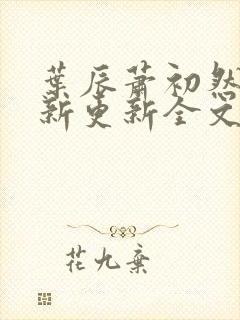 葉辰蕭初然
新更新全文
花九棄